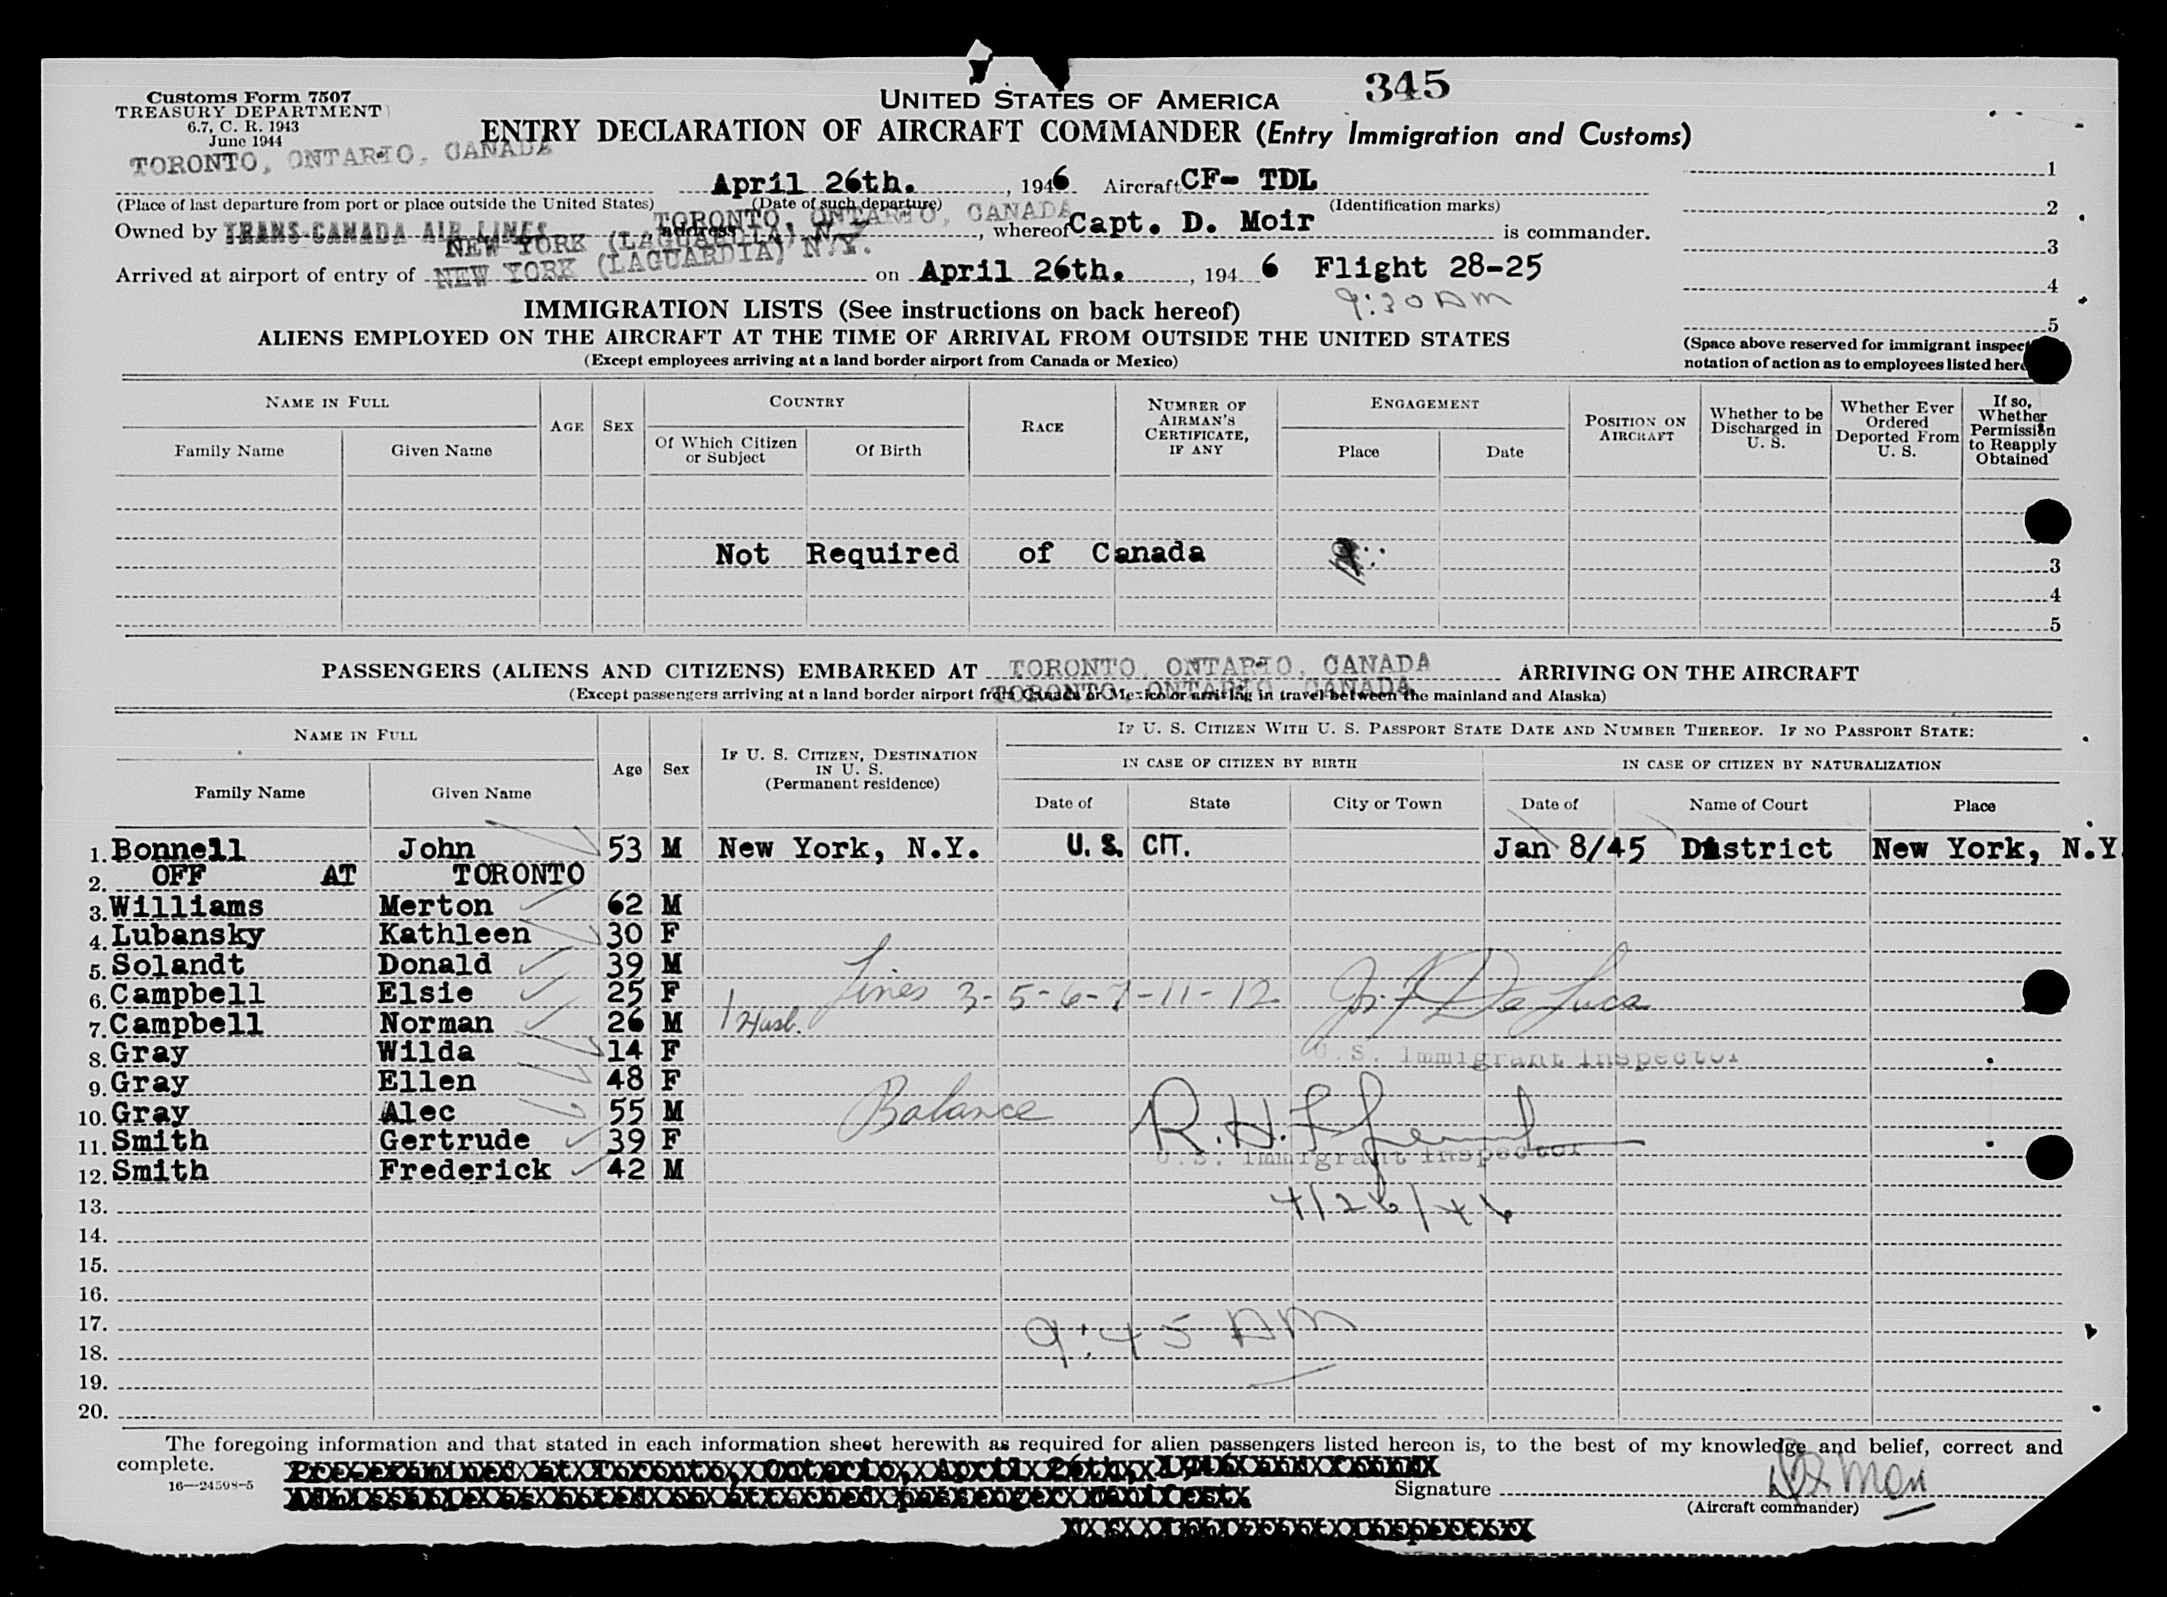 345
Customs Form 7507
TREASURY DEPARTMENT
6.7, C. R. 1943
June 1944
UNITED STATES OF AMERICA
ENTRY DECLARATION OF AIRCRAFT COMMANDER (Entry Immigration and Customs)
TORONTO, ONTARIO, CANADA
April 26th. , 1946 Aircraft CF- TDL
(Place of last departure from port or place outside the United States) (Date of such departure) (Identification marks)
TORONTO, ONTARIO, CANADA
Owned by TRANS-CANADA AIR LINES address , whereof Capt. D. Moir is commander.
NEW YORK (LAGUARDIA) N.Y.
Arrived at airport of entry of NEW YORK (LAGUARDIA) N.Y. on April 26th. , 194 6 Flight 28-25
9:30 AM
1
2
3
4
5
(Space above reserved for immigrant
notation of action as to employees listed
IMMIGRATION LISTS (See instructions on back hereof)
ALIENS EMPLOYED ON THE AIRCRAFT AT THE TIME OF ARRIVAL FROM OUTSIDE THE UNITED STATES
(Except employees arriving at a land border airport from Canada or Mexico)
NAME IN FULL
Family Name Given Name
AGE SEX
COUNTRY
Of Which Citizen or Subject Of Birth
RACE
NUMBER OF AIRMAN'S CERTIFICATE, IF ANY
ENGAGEMENT
Place Date
POSITION ON AIRCRAFT
Whether to be Discharged in U. S.
Whether Ever Ordered Deported From U. S.
If so, Whether Permission to Reapply Obtained
Not Required of Canada
3
4
5
PASSENGERS (ALIENS AND CITIZENS) EMBARKED AT TORONTO, ONTARIO, CANADA ARRIVING ON THE AIRCRAFT
(Except passengers arriving at a land border airport from Canada or Mexico or arriving in travel between the mainland and Alaska)
TORONTO, ONTARIO, CANADA
NAME IN FULL
Family Name Given Name
Age Sex
IF U. S. CITIZEN, DESTINATION IN U. S. (Permanent residence)
IF U. S. CITIZEN WITH U. S. PASSPORT STATE DATE AND NUMBER THEREOF. IF NO PASSPORT STATE:
IN CASE OF CITIZEN BY BIRTH IN CASE OF CITIZEN BY NATURALIZATION
Date of State City or Town Date of Name of Court Place
1. Bonnell John 53 M New York, N.Y. U.S. CIT. Jan 8/45 District New York, N.Y.
2. OFF AT TORONTO
3. Williams Merton 62 M
4. Lubansky Kathleen 30 F
5. Solandt Donald 39 M
6. Campbell Elsie 25 F
Lines 3-5-6-7-11-12 De Luca
7. Campbell Norman 26 M Husb.
8. Gray Wilda 14 F
U.S. Immigrant Inspector
9. Gray Ellen 48 F
10. Gray Alec 55 M
Balance R.H.
11. Smith Gertrude 39 F
U.S. Immigrant Inspector
12. Smith Frederick 42 M
13.
4/26/46
14.
15.
16.
17.
9:45 AM
18.
19.
20.
The foregoing information and that stated in each information sheet herewith as required for alien passengers listed hereon is, to the best of my knowledge and belief, correct and
complete.
Pre-examined at Toronto, Ontario, April 26th, 1946 and found
Admissable as noted on attached passenger manifest.
16—24598-5
Signature
(Aircraft commander)
U S Immigrant Inspector